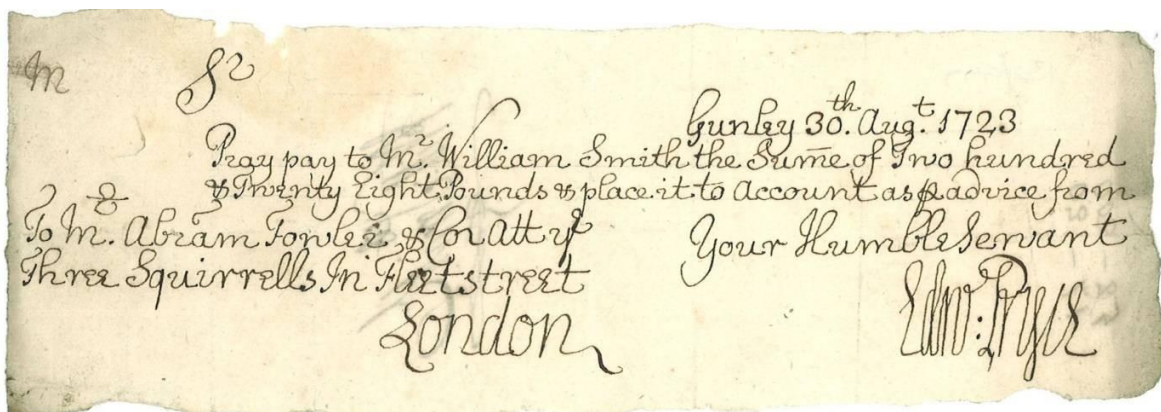 Sr
Gunley 30th. Augt. 1723
Pray pay to Mr. William Smith the Sume of Two hundred
& Twenty Eight Pounds & place it to Account as p advice from
To Mr. Abram Fowler & Co: Att ye Your Humble Servant
Three Squirrells In Fleetstreet
London Edwd: Pryce